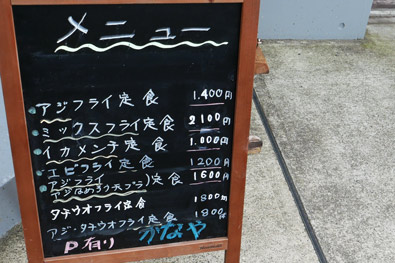 メニュー
アジフライ定食 1.400円
ミックスフライ定食 2100円
イカメンチ定食 1.000円
エビフライ定食 1200円
アジフライ
アジなめろう天プラ)定食 1600円
タチウオフライ定食 1800円
アジ・タチウオフライ定食 1800円
P有り かなや